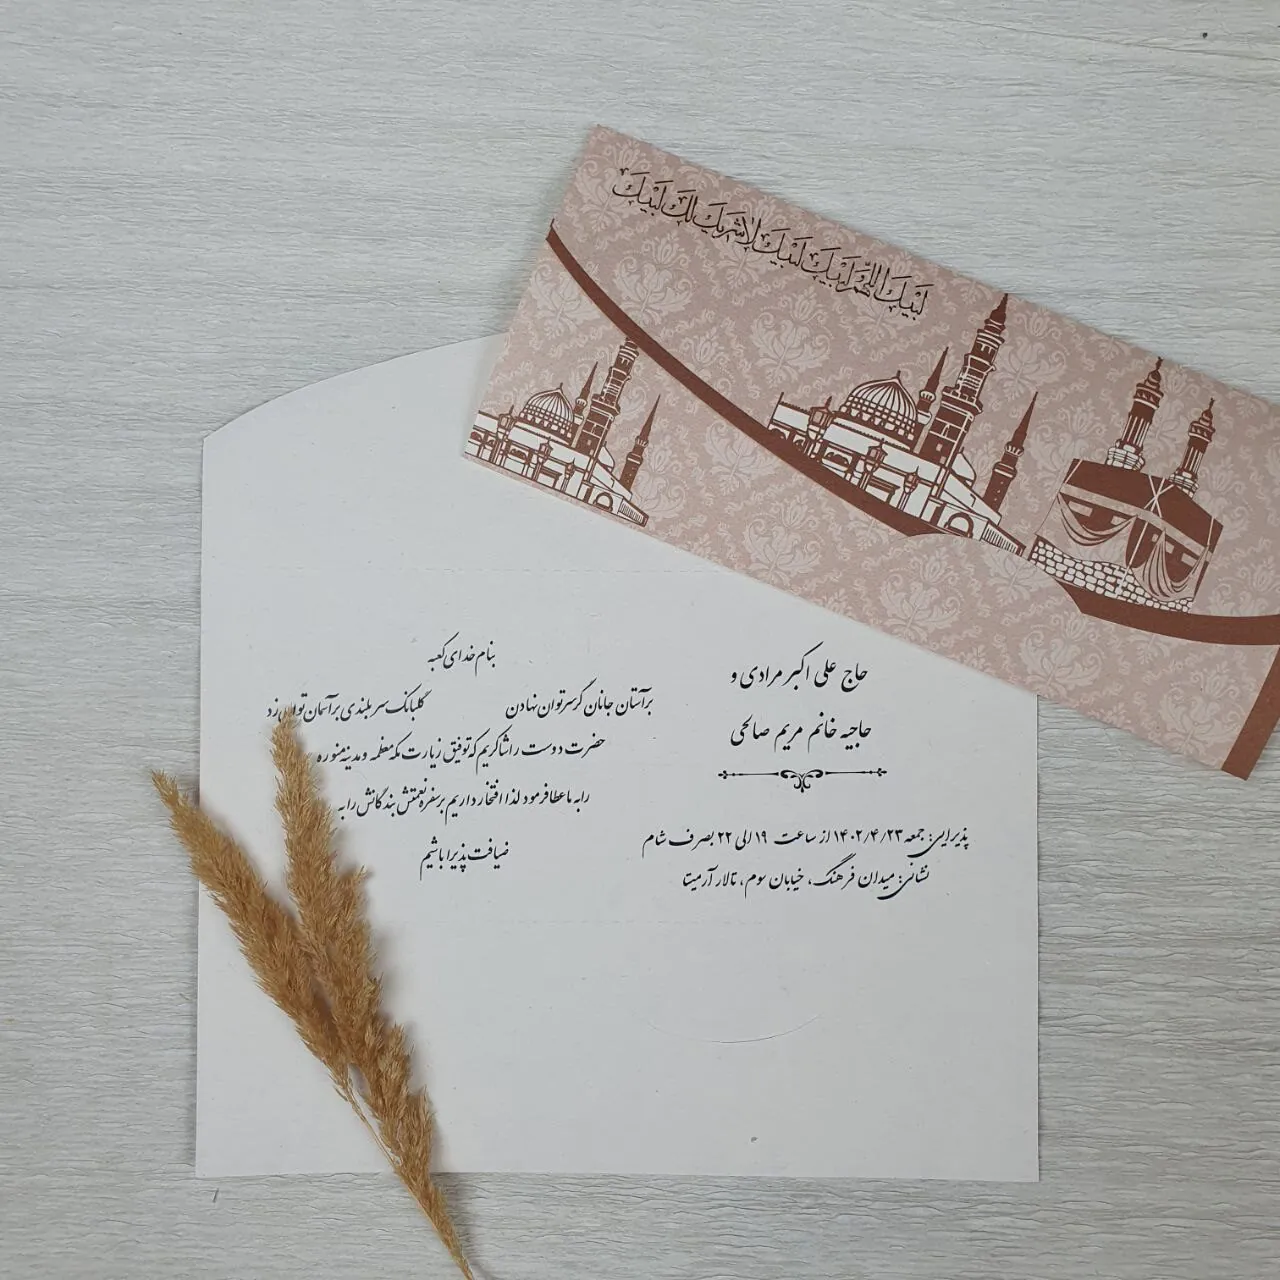 لَبَّيْكَ اللّهُمَّ لَبَّيْكَ لَبَّيْكَ لاٰشَرِيكَ لَكَ لَبَّيْكَ
حاج علی اکبر مرادی و
حاجیه خانم مریم صالحی
پذیرایی: جمعه ۱۴۰۲/۴/۲۳ از ساعت ۱۹ الی ۲۲ بصرف شام
نشانی: میدان فرهنگ، خیابان سوم، تالار آرمیتا
بنام خدای کعبه
برآستان جانان گر سر توان نهادن گلبانگ سر بلندی بر آسمان توان زد
حضرت دوست را شاکریم که توفیق زیارت مکه معظمه و مدینه منوره
را به ما عطا فرمود لذا افتخار داریم بر سفره نعمتش بندگانش را به
ضیافت پذیرا باشیم